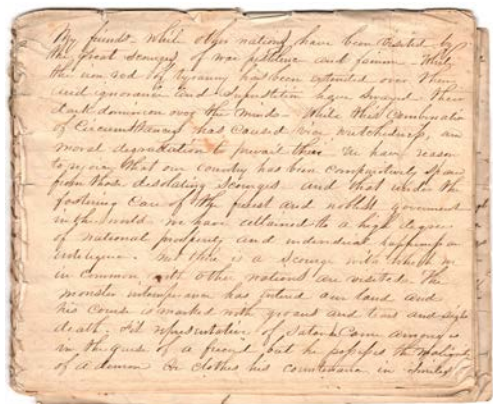 My friends - While other nations have been visited by
the great scourges of war pestilence and famine - While
the iron rod of tyranny has been extended over them
and ignorance and superstition have swayed their
dark dominion over the minds - While this combination
of Circumstances has caused war wretchedness, and
moral degradation to prevail there. We have reason
to rejoice that our country has been comparitively spared
from those desolating scourges and that under the
fostering care of the freest and noblest government
in the world we have attained to a high degree
of national prosperity and individual happiness an
inteligence. But there is a Scourge with which we
in common with other nations are visited. The
monster intemperance has entered our land and
his course is marked with groans and tears and sighs
death. Fit representative of Satan Come among us
in the guise of a friend but he possesses the malignity
of a demon he clothes his countenance in smiles